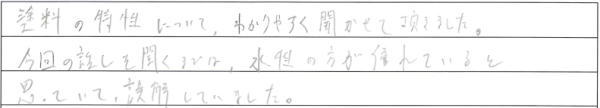 塗料の特性について、わかりやすく聞かせて頂きました。
今回の話しを聞くまでは、水性の方が優れていると
思っていて、誤解していました。